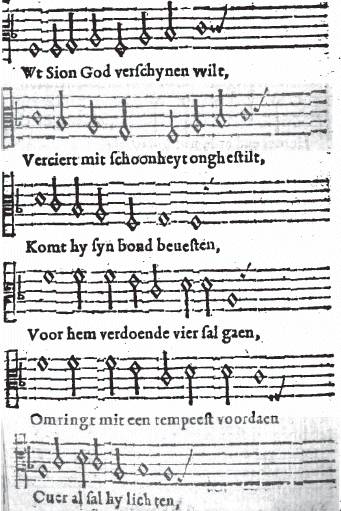 Wt Sion God verſchynen wilt,
Verciert mit ſchoonheyt ongheſtilt,
Komt hy ſyn bond beueſten,
Voor hem verdoende vier ſal gaen,
Omringt mit een tempeeſt voordaen
Ouer al ſal hy lichten,